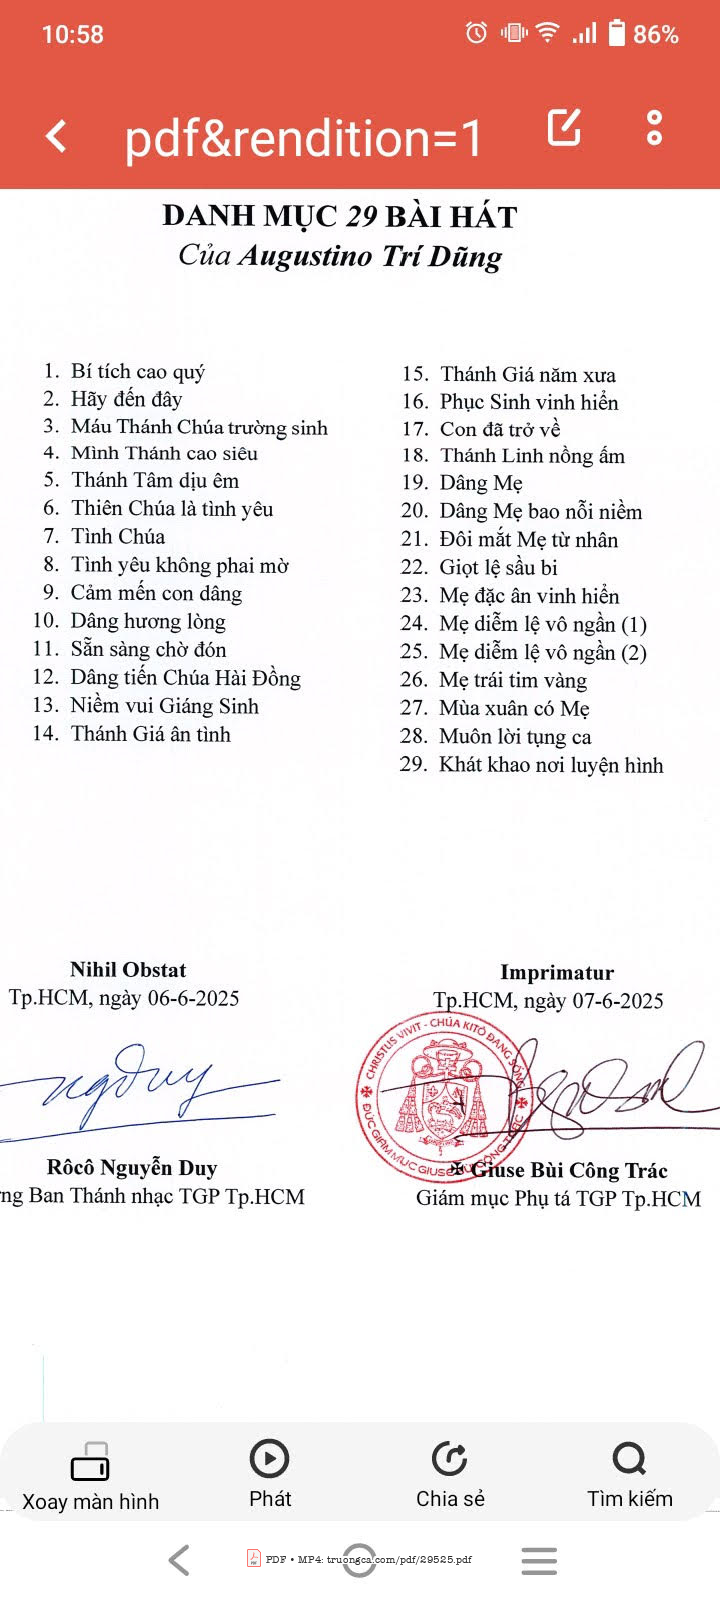 10:58
86%
pdf&rendition=1
DANH MỤC 29 BÀI HÁT
Của Augustino Trí Dũng
1. Bí tích cao quý
2. Hãy đến đây
3. Máu Thánh Chúa trường sinh
4. Mình Thánh cao siêu
5. Thánh Tâm dịu êm
6. Thiên Chúa là tình yêu
7. Tình Chúa
8. Tình yêu không phai mờ
9. Cảm mến con dâng
10. Dâng hương lòng
11. Sẵn sàng chờ đón
12. Dâng tiến Chúa Hài Đồng
13. Niềm vui Giáng Sinh
14. Thánh Giá ân tình
15. Thánh Giá năm xưa
16. Phục Sinh vinh hiển
17. Con đã trở về
18. Thánh Linh nồng ấm
19. Dâng Mẹ
20. Dâng Mẹ bao nỗi niềm
21. Đôi mắt Mẹ từ nhân
22. Giọt lệ sầu bi
23. Mẹ đặc ân vinh hiển
24. Mẹ diễm lệ vô ngần (1)
25. Mẹ diễm lệ vô ngần (2)
26. Mẹ trái tim vàng
27. Mùa xuân có Mẹ
28. Muôn lời tụng ca
29. Khát khao nơi luyện hình
Nihil Obstat
Tp.HCM, ngày 06-6-2025
ngduy
Rôcô Nguyễn Duy
ng Ban Thánh nhạc TGP Tp.HCM
Imprimatur
Tp.HCM, ngày 07-6-2025
CHRISTUS VIVIT - CHÚA KITÔ ĐANG SỐNG
ĐỨC GIÁM MỤC GIUSE BÙI CÔNG TRÁC
Giuse Bùi Công Trác
Giám mục Phụ tá TGP Tp.HCM
Xoay màn hình
Phát
Chia sẻ
Tìm kiếm
PDF • MP4: truongca.com/pdf/29525.pdf